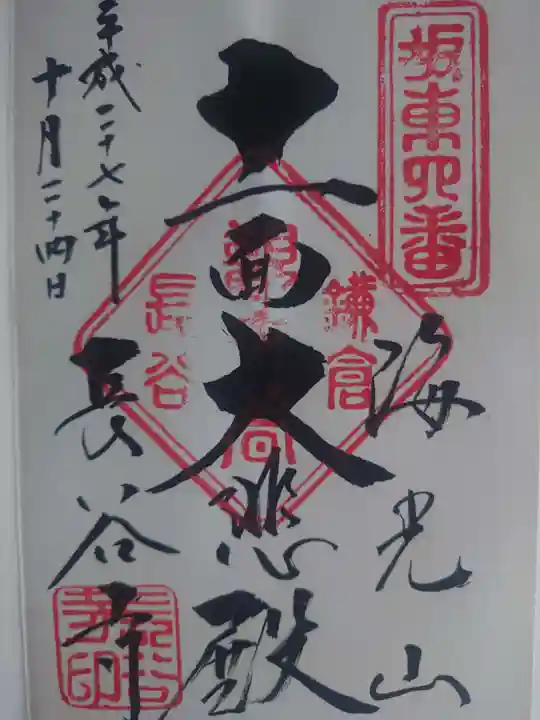 坂東四番
海光山
十一面大悲殿
鎌倉
長谷
長谷寺
平成二十七年
十月二十四日